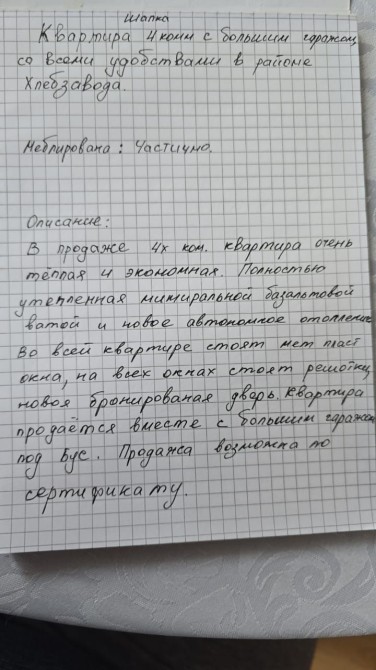 Шапка
Квартира 4 комн с большим гаражом
со всеми удобствами в районе
Хлебзавода.
Меблирована: Частично.
Описание:
В продаже 4х ком. квартира очень
тёплая и экономная. Полностью
утепленная миниральной базальтовой
ватой и новое автономное отопление
Во всей квартире стоят мет пласт
окна, на всех окнах стоят решотки,
новоя бронированая дверь. Квартира
продаётся вместе с большим гаражом
под Бус. Продажа возможна по
сертификату.